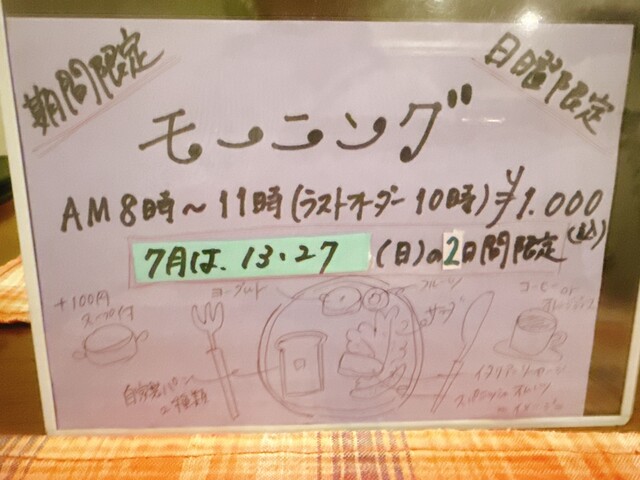 期間限定
日曜限定
モーニング
AM 8時～11時(ラストオーダー 10時) ¥1.000
(税込)
7月は、13・27 (日)の2日間限定
+100円
スープ付
ヨーグルト
フルーツ
サラダ
コーヒーor
オレンジジュース
自家製パン
2種類
イタリアンソーセージ
スパニッシュオムレツ